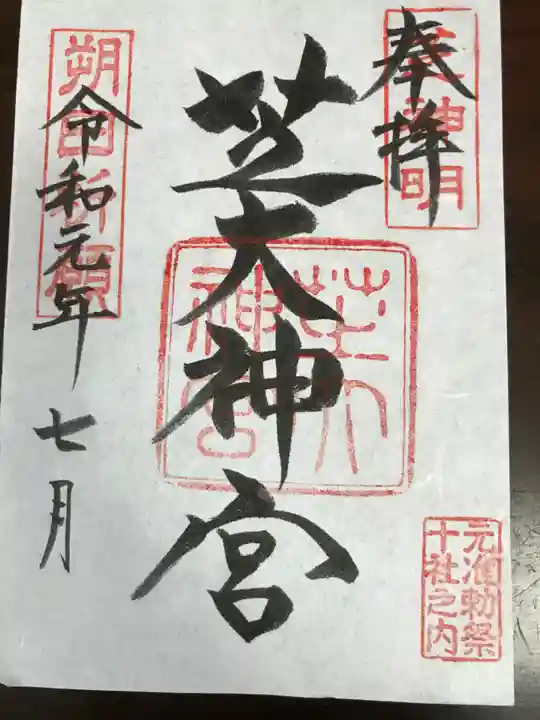 奉拝
芝神明
芝大神宮
芝大神宮
元准勅祭
十社之内
朔日祈願
令和元年七月